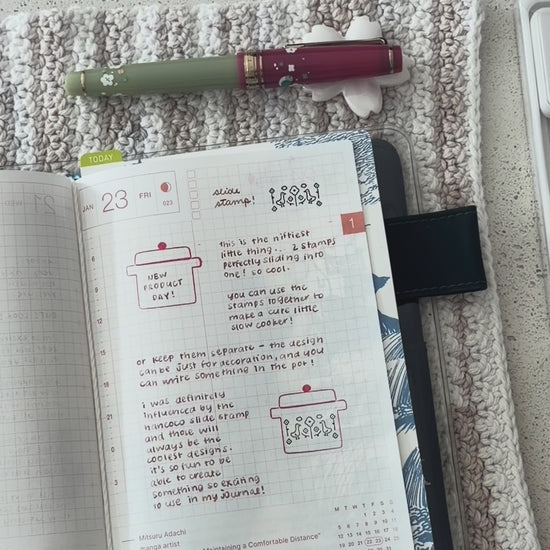 TODAY
JAN 23 FRI
023
slide
stamp!
1
this is the niftiest
little thing... 2 stamps
perfectly sliding into
one! so cool.
NEW
PRODUCT
DAY!
you can use the
stamps together to
make a cute little
slow cooker!
or keep them separate - the design
can be just for decoration, and you
can write something in the pot!
i was definitely
influenced by the
hancoco slide stamp
and those will
always be the
coolest designs.
it's so fun to be
able to create
something so exciting
to use in my journal!
6
9
12
15
18
21
0
3
Mitsuru Adachi
manga artist
"Maintaining a Comfortable Distance"
M T W T F S S
1 2 3 4
5 6 7 8 9 10 11
12 13 14 15 16 17 18
19 20 21 22 23 24 25